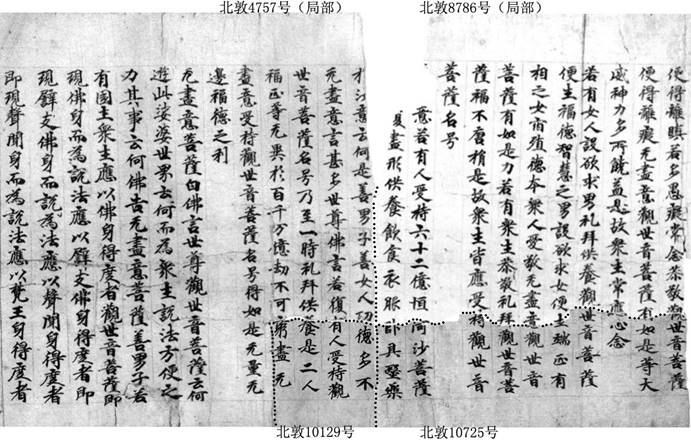 北敦4757号（局部）
北敦8786号（局部）
便得離瞋若多愚癡常念恭敬觀世音菩薩
便得離癡无盡意觀世音菩薩有如是等大
威神力多所饒益是故衆生常應心念
若有女人設欲求男礼拜供養觀世音菩薩
便生福德智慧之男設欲求女便生端正有
相之女宿殖德本衆人愛敬无盡意觀世音
菩薩有如是力若有衆生恭敬礼拜觀世音菩
薩福不唐捐是故衆生皆應受持觀世音
菩薩名号
意若有人受持六十二億恒河沙菩薩
盡形供養飲食衣服卧具醫藥
汝意云何是善男子善女人功德多不
无盡意言甚多世尊佛言若復有人受持觀
世音菩薩名号乃至一時礼拜供養是二人
福正等无異於百千万億劫不可窮盡无
盡意受持觀世音菩薩名号得如是无量无
邊福德之利
无盡意菩薩白佛言世尊觀世音菩薩云何
遊此娑婆世界云何而為衆生說法方便之
力其事云何佛告无盡意菩薩善男子若
有國土衆生應以佛身得度者觀世音菩薩即
現佛身而為說法應以辟支佛身得度者即
現辟支佛身而為說法應以聲聞身得度者
即現聲聞身而為說法應以梵王身得度者
北敦10129号
北敦10725号